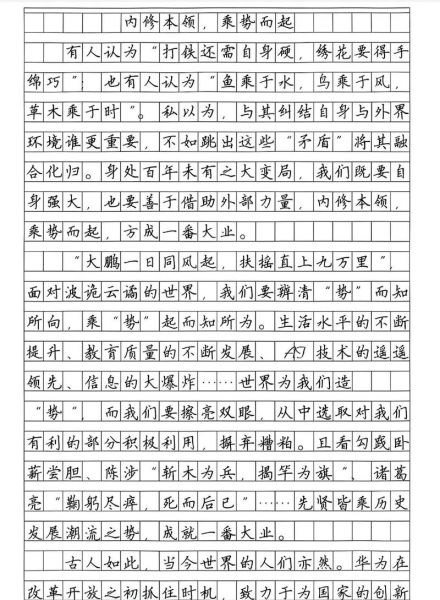 内修本领，乘势而起
有人认为“打铁还需自身硬，绣花要得手
绵巧”；也有人认为“鱼乘于水，鸟乘于风，
草木乘于时”。私以为，与其纠结自身与外界
环境谁更重要，不如跳出这些“矛盾”将其融
合化归。身处百年未有之大变局，我们既要自
身强大，也要善于借助外部力量，内修本领，
乘势而起，方成一番大业。
“大鹏一日同风起，扶摇直上九万里”，
面对波诡云谲的世界，我们要辨清“势”而知
所向，乘“势”起而知所为。生活水平的不断
提升、教育质量的不断发展、AI技术的遥遥
领先、信息的大爆炸……世界为我们造
“势”，而我们要擦亮双眼，从中选取对我们
有利的部分积极利用，摒弃糟粕。且看勾践卧
薪尝胆、陈涉“斩木为兵，揭竿为旗”、诸葛
亮“鞠躬尽瘁，死而后已”……先贤皆乘历史
发展潮流之势，成就一番大业。
古人如此，当今世界的人们亦然。华为在
改革开放之初抓住时机，致力于为国家的创新